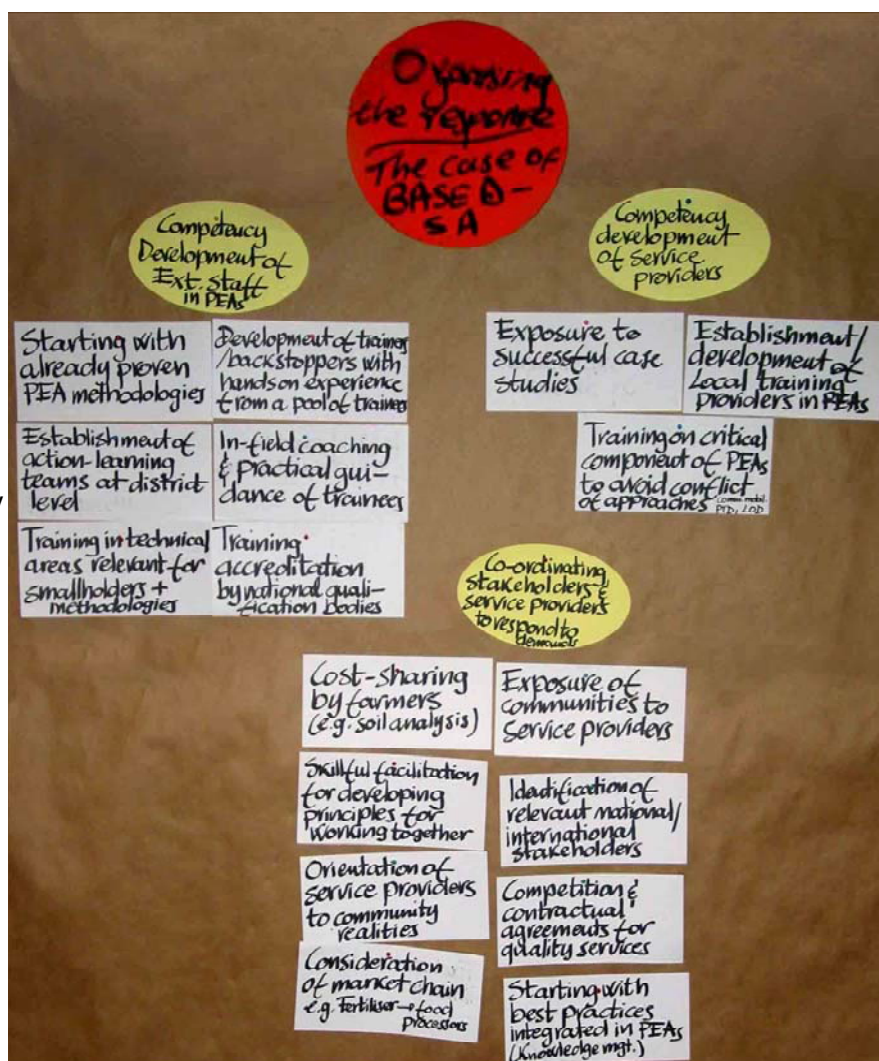 Organising
the response
The case of
BASED -
SA
Competency
Development of
Ext. staff
in PEAs
Starting with
already proven
PEA methodologies
Development of trainers
/backstoppers with
hands on experience
from a pool of trainees
Establishment of
action-learning
teams at district
level
In-field coaching
& practical gui-
dance of trainees
Training in technical
areas relevant for
smallholders +
methodologies
Training
accreditation
by national quali-
fication bodies
Competency
development
of service
providers
Exposure to
successful case
studies
Establishment/
development of
Local training
providers in PEAs
Training on critical
component of PEAs
to avoid conflict
of approaches comm. mobil.
PTD, LOD
Co-ordinating
stakeholders &
service providers
to respond to
demands
Cost-sharing
by farmers
(e.g. soil analysis)
Exposure of
communities to
service providers
Skillful facilitation
for developing
principles for
working together
Identification of
relevant national/
international
stakeholders
Orientation of
service providers
to community
realities
Competition &
contractual
agreements for
quality services
Consideration
of market chain
e.g. Fertiliser → food
processors
Starting with
best practices
integrated in PEAs
(Knowledge mgt.)